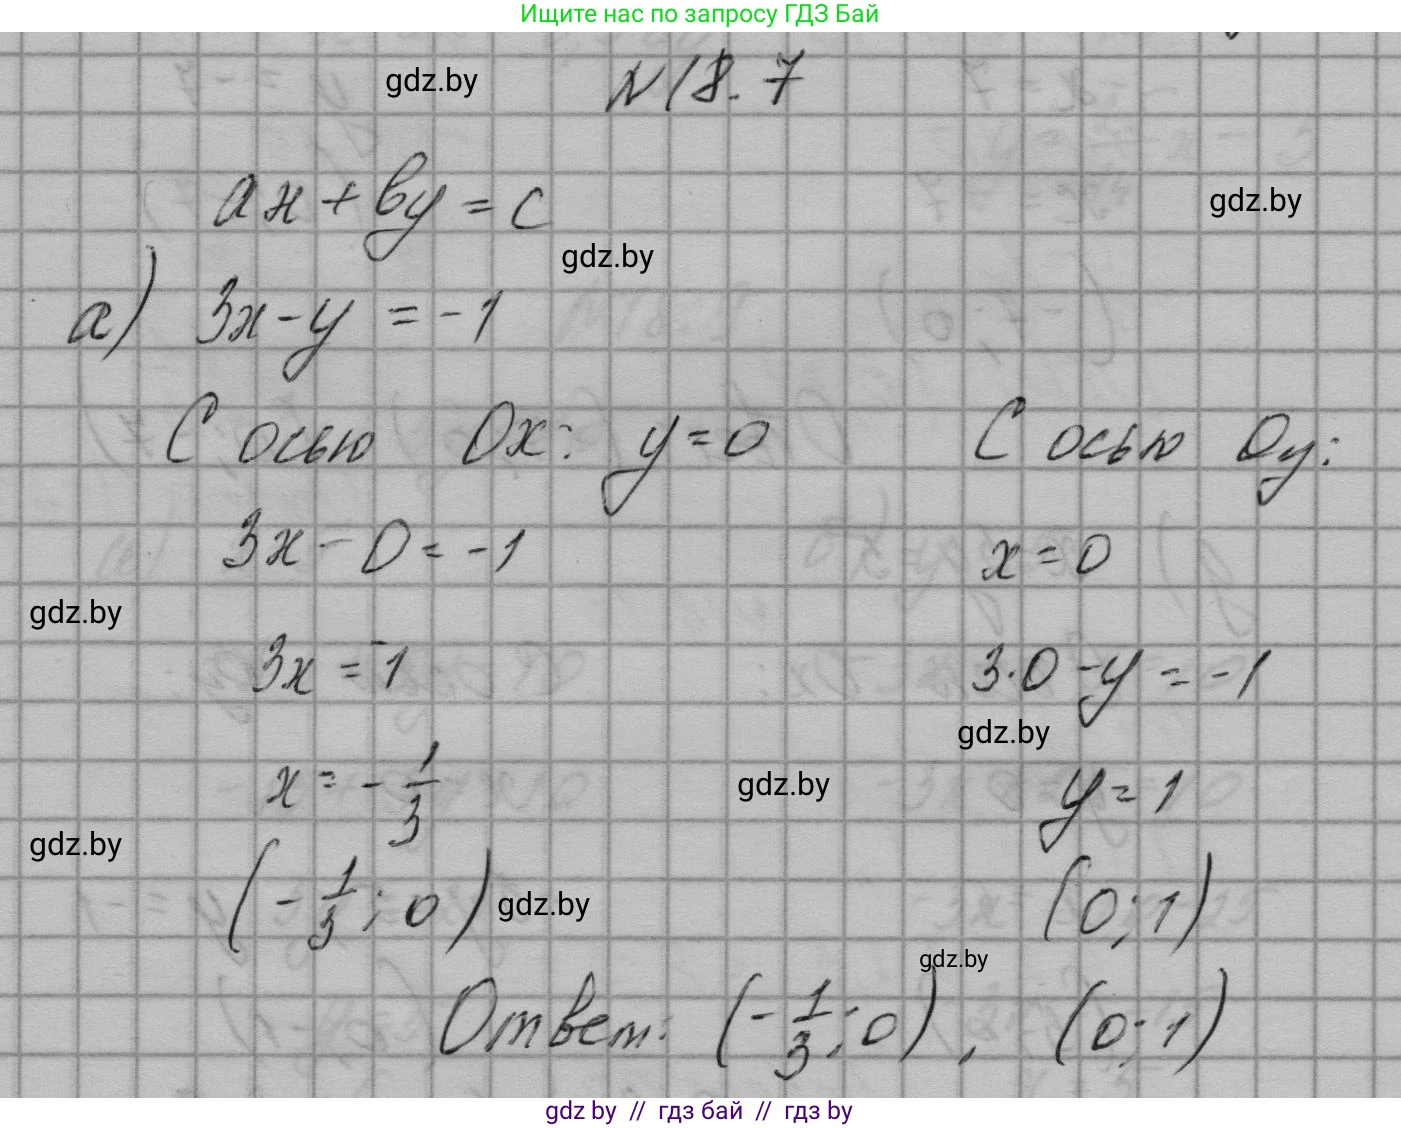 Ищите нас по запросу ГДЗ Бай
gdz.by
N18.7
ax+by=c
gdz.by
gdz.by
а) 3x-y = -1
С осью Ox: y=0
С осью Oy:
3x-0=-1
x=0
gdz.by
3x=-1
3·0-y=-1
gdz.by
x=-1/3
gdz.by
y=1
gdz.by
(-1/3; 0)
gdz.by
(0; 1)
gdz.by
Ответ: (-1/3; 0), (0; 1)
gdz by // гдз бай // гдз by